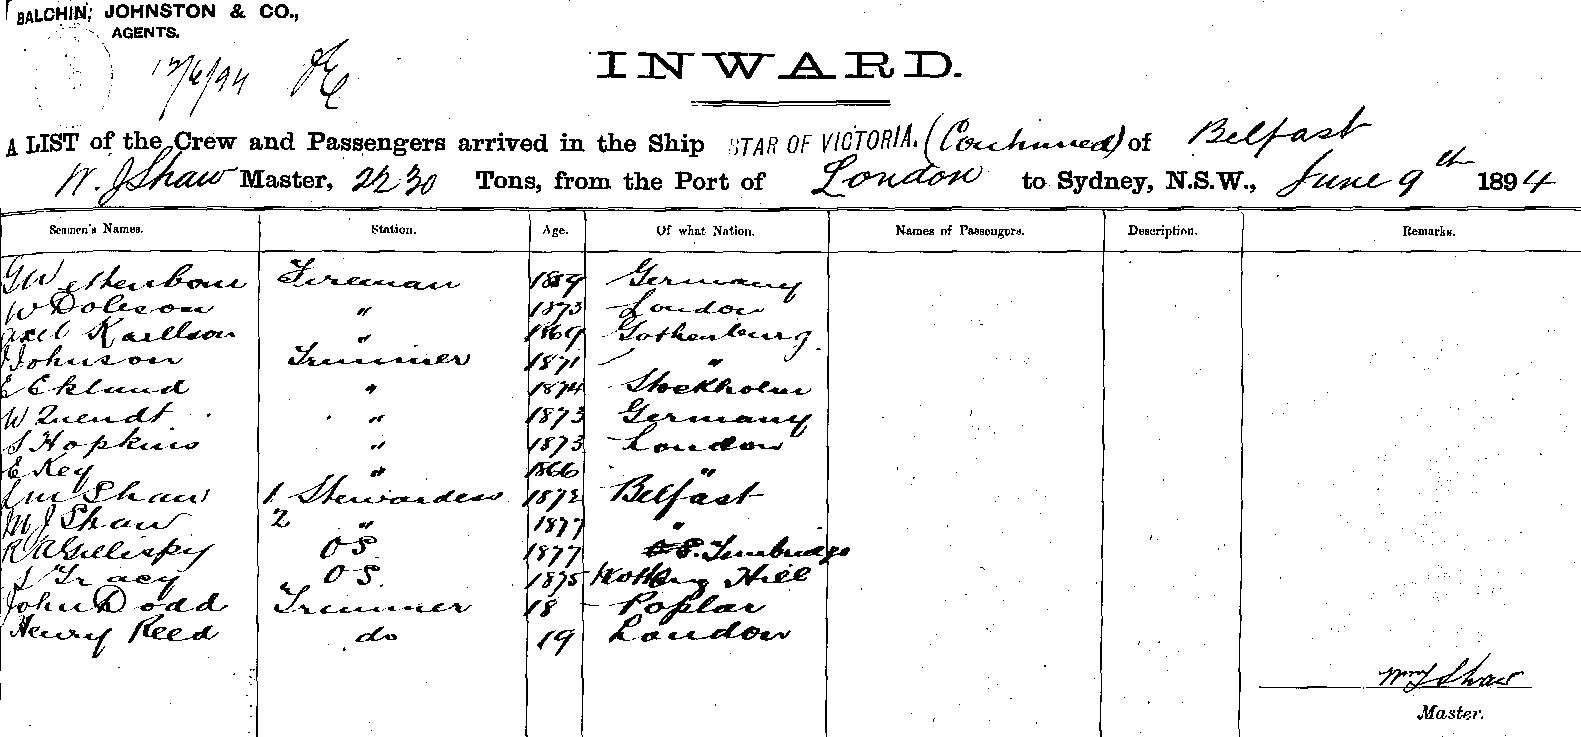 BALCHIN, JOHNSTON & CO.,
AGENTS.
12/6/94
INWARD.
A LIST of the Crew and Passengers arrived in the Ship STAR OF VICTORIA. (Continued) of Belfast
W. J Shaw Master, 2230 Tons, from the Port of London to Sydney, N.S.W., June 9th 1894
Seamen's Names. Station. Age. Of what Nation. Names of Passengers. Description. Remarks.
G Fireman 1869 Germany
W Dobson " 1873 London
Axel Karllson " 1869 Gothenburg
J Johnson Trimmer 1871 "
E Eklund " 1874 Stockholm
W Quendt " 1873 Germany
S Hopkins " 1873 London
E Key " 1866 "
Shaw 1 Stewardess 1872 Belfast
M J Shaw 2 " 1877 "
R A Gillispy OS 1877 Tunbridge
J Tracy OS. 1875 Notting Hill
John Dodd Trimmer 18 Poplar
Henry Reed do 19 London
Wm J Shaw
Master.